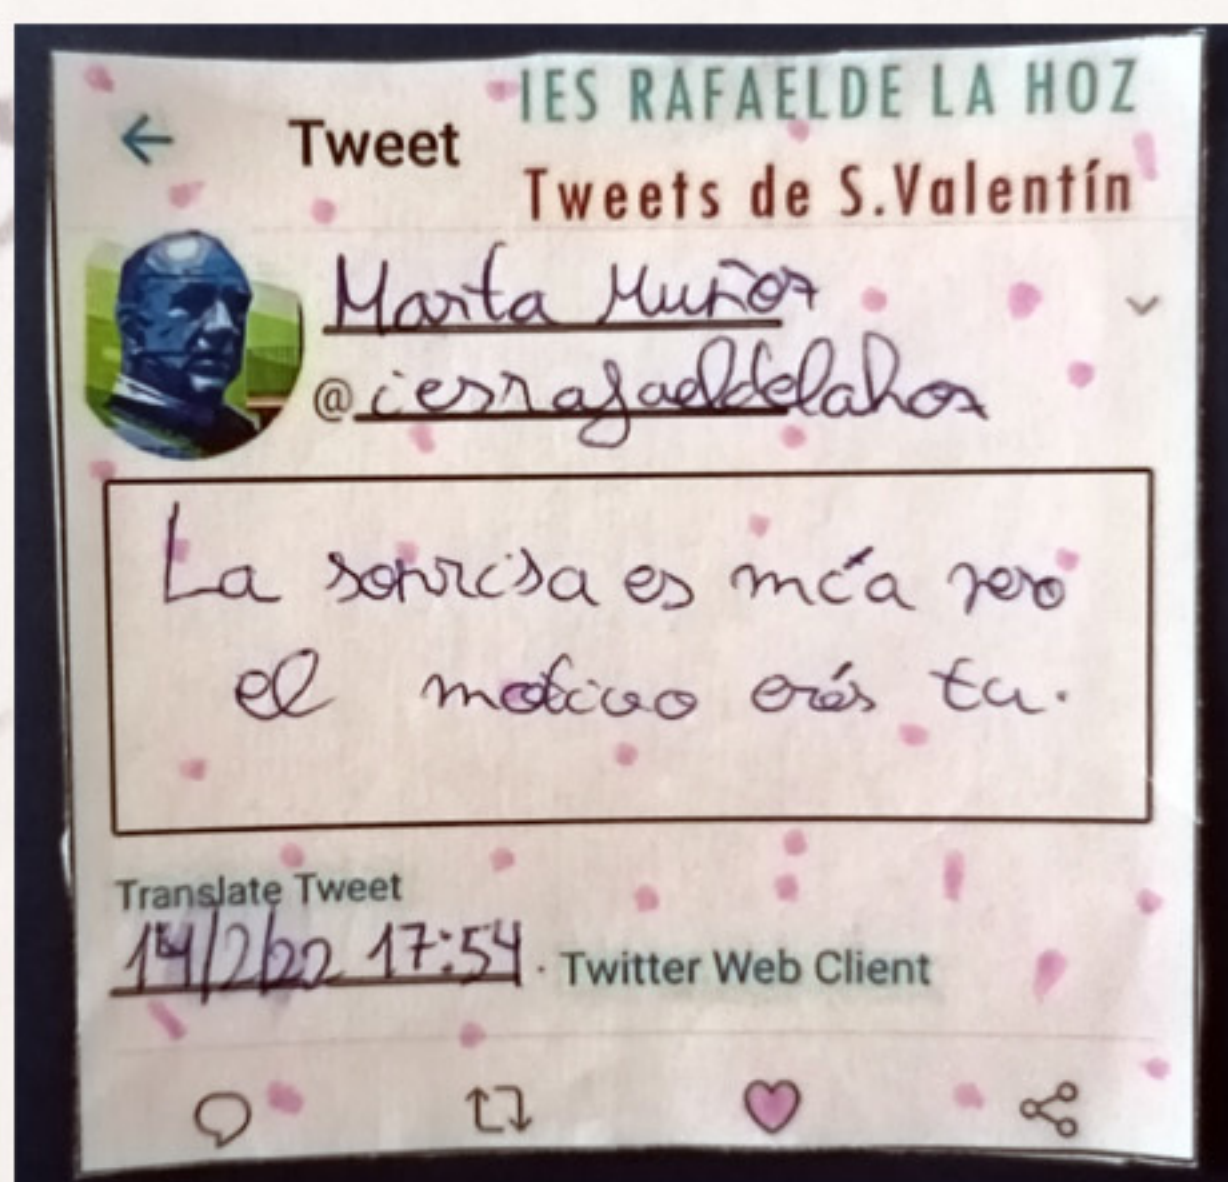 IES RAFAELDE LA HOZ
Tweet
Tweets de S.Valentín
Marta Muñoz
@iesrafaeldelahoz
La sonrisa es mía pero
el motivo erés tu.
Translate Tweet
14/2/22 17:54 · Twitter Web Client